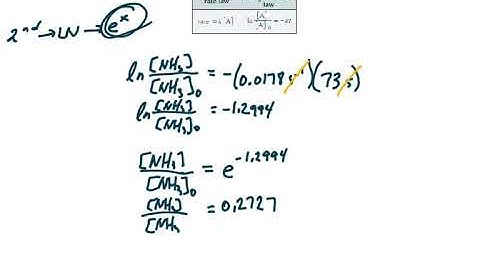 rate law
law
rate = k [A]
ln [A] / [A]₀ = -kt
2ⁿᵈ → LN → eˣ
ln [NH₃] / [NH₃]₀ = -(0.0178 s⁻¹)(73 s)
ln [NH₃] / [NH₃]₀ = -1.2994
[NH₃] / [NH₃]₀ = e^-1.2994
[NH₃] / [NH₃ = 0.2727